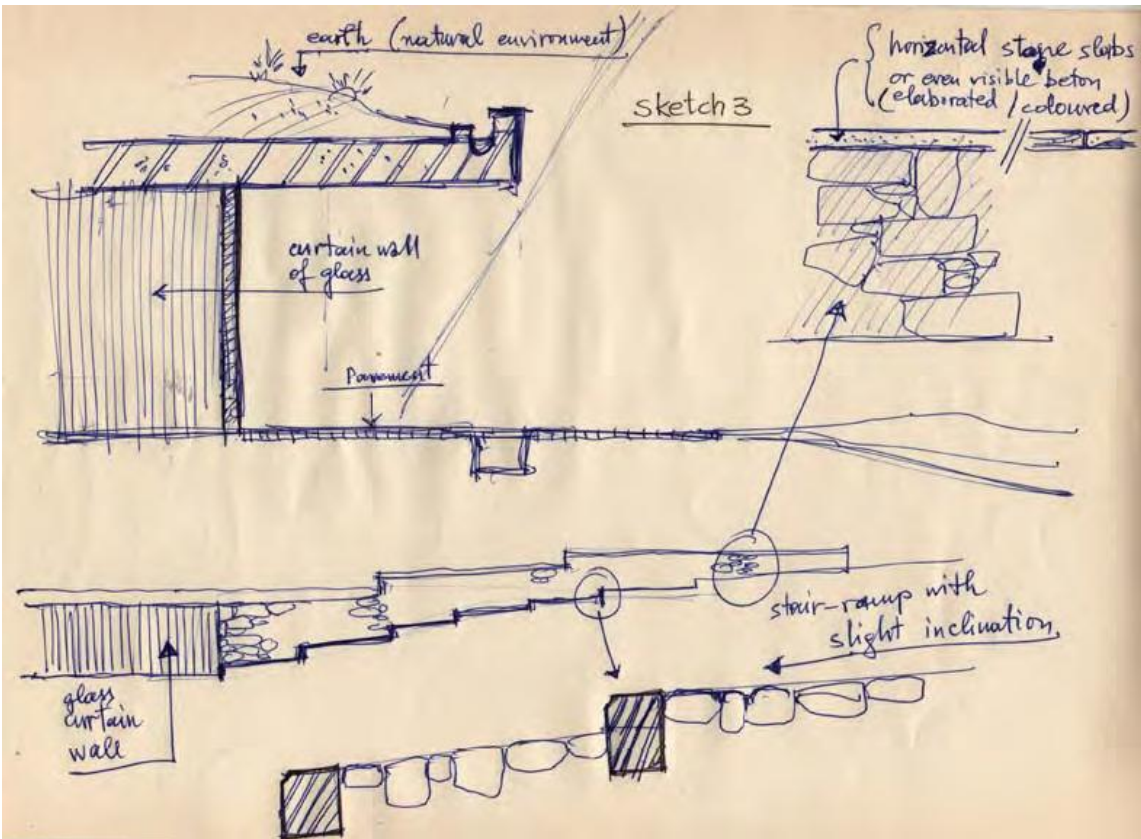 earth (natural environment)
sketch 3
horizontal stone slabs
or even visible beton
(elaborated / coloured)
curtain wall
of glass
Pavement
stair-ramp with
slight inclination
glass
curtain
wall